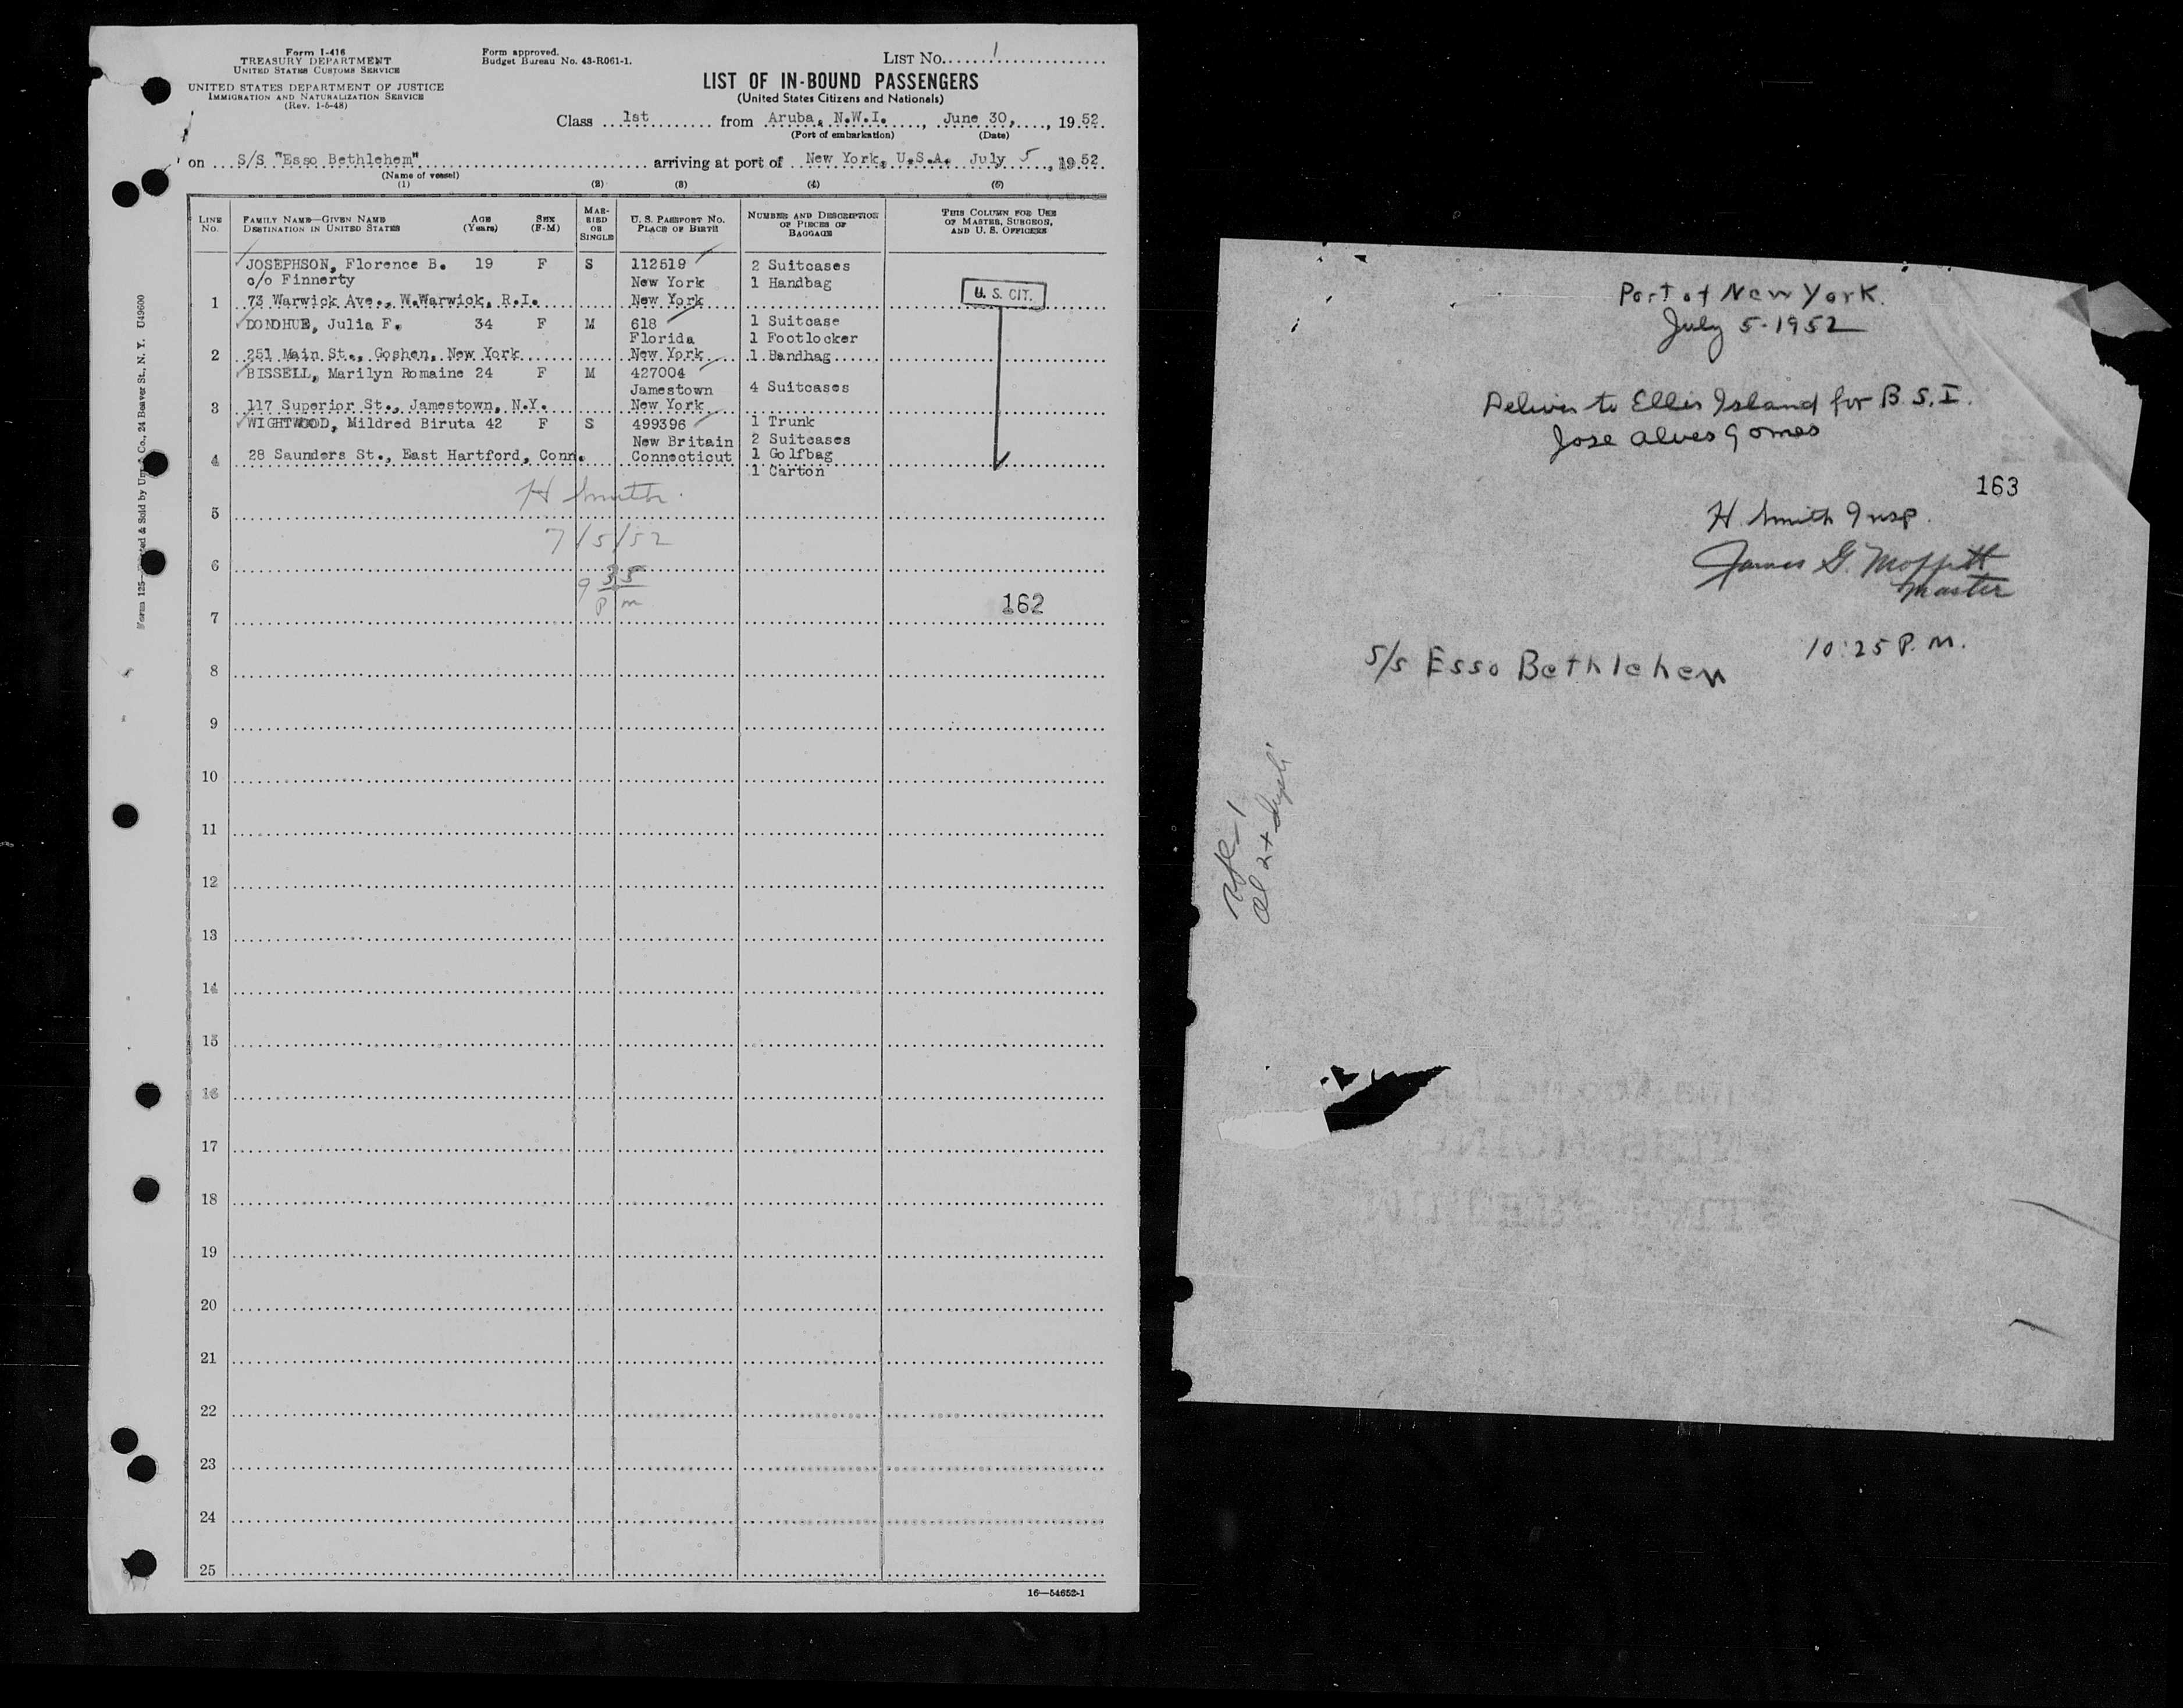 Form I-416
TREASURY DEPARTMENT
UNITED STATES CUSTOMS SERVICE
UNITED STATES DEPARTMENT OF JUSTICE
IMMIGRATION AND NATURALIZATION SERVICE
(Rev. 1-6-48)
Form approved.
Budget Bureau No. 43-R061-1.
LIST No. 1
LIST OF IN-BOUND PASSENGERS
(United States Citizens and Nationals)
Class 1st from Aruba, N.W.I., June 30, 1952
(Port of embarkation) (Date)
on S/S "Esso Bethlehem" arriving at port of New York, U.S.A. July 5, 1952
(Name of vessel)
(1) (2) (3) (4) (5)
LINE No. FAMILY NAME—GIVEN NAME DESTINATION IN UNITED STATES AGE (Years) SEX (F-M) MARRIED OR SINGLE U. S. PASSPORT NO. PLACE OF BIRTH NUMBER AND DESCRIPTION OF PIECES OF BAGGAGE THIS COLUMN FOR USE OF MASTER, SURGEON, AND U. S. OFFICERS
JOSEPHSON, Florence B. 19 F S 112519 2 Suitcases
c/o Finnerty New York 1 Handbag
1 73 Warwick Ave., W.Warwick, R.I. New York U. S. CIT.
DONOHUE, Julia F. 34 F M 618 1 Suitcase
Florida 1 Footlocker
2 251 Main St., Goshen, New York New York 1 Handbag
BISSELL, Marilyn Romaine 24 F M 427004
Jamestown 4 Suitcases
3 117 Superior St., Jamestown, N.Y. New York
WIGHTWOOD, Mildred Biruta 42 F S 499396 1 Trunk
New Britain 2 Suitcases
4 28 Saunders St., East Hartford, Conn. Connecticut 1 Golfbag
1 Carton
H Smith
5
7/5/52
6
9 35
P m
162
7
8
9
10
11
12
13
14
15
16
17
18
19
20
21
22
23
24
25
16—54652-1
24 Beaver St., N. Y. U49600
Port of New York.
July 5-1952
Deliver to Ellis Island for B.S.I.
Jose Alves Gomes
163
H. Smith Insp.
James G. Moffitt
Master
10:25 P.M.
S/S Esso Bethlehem